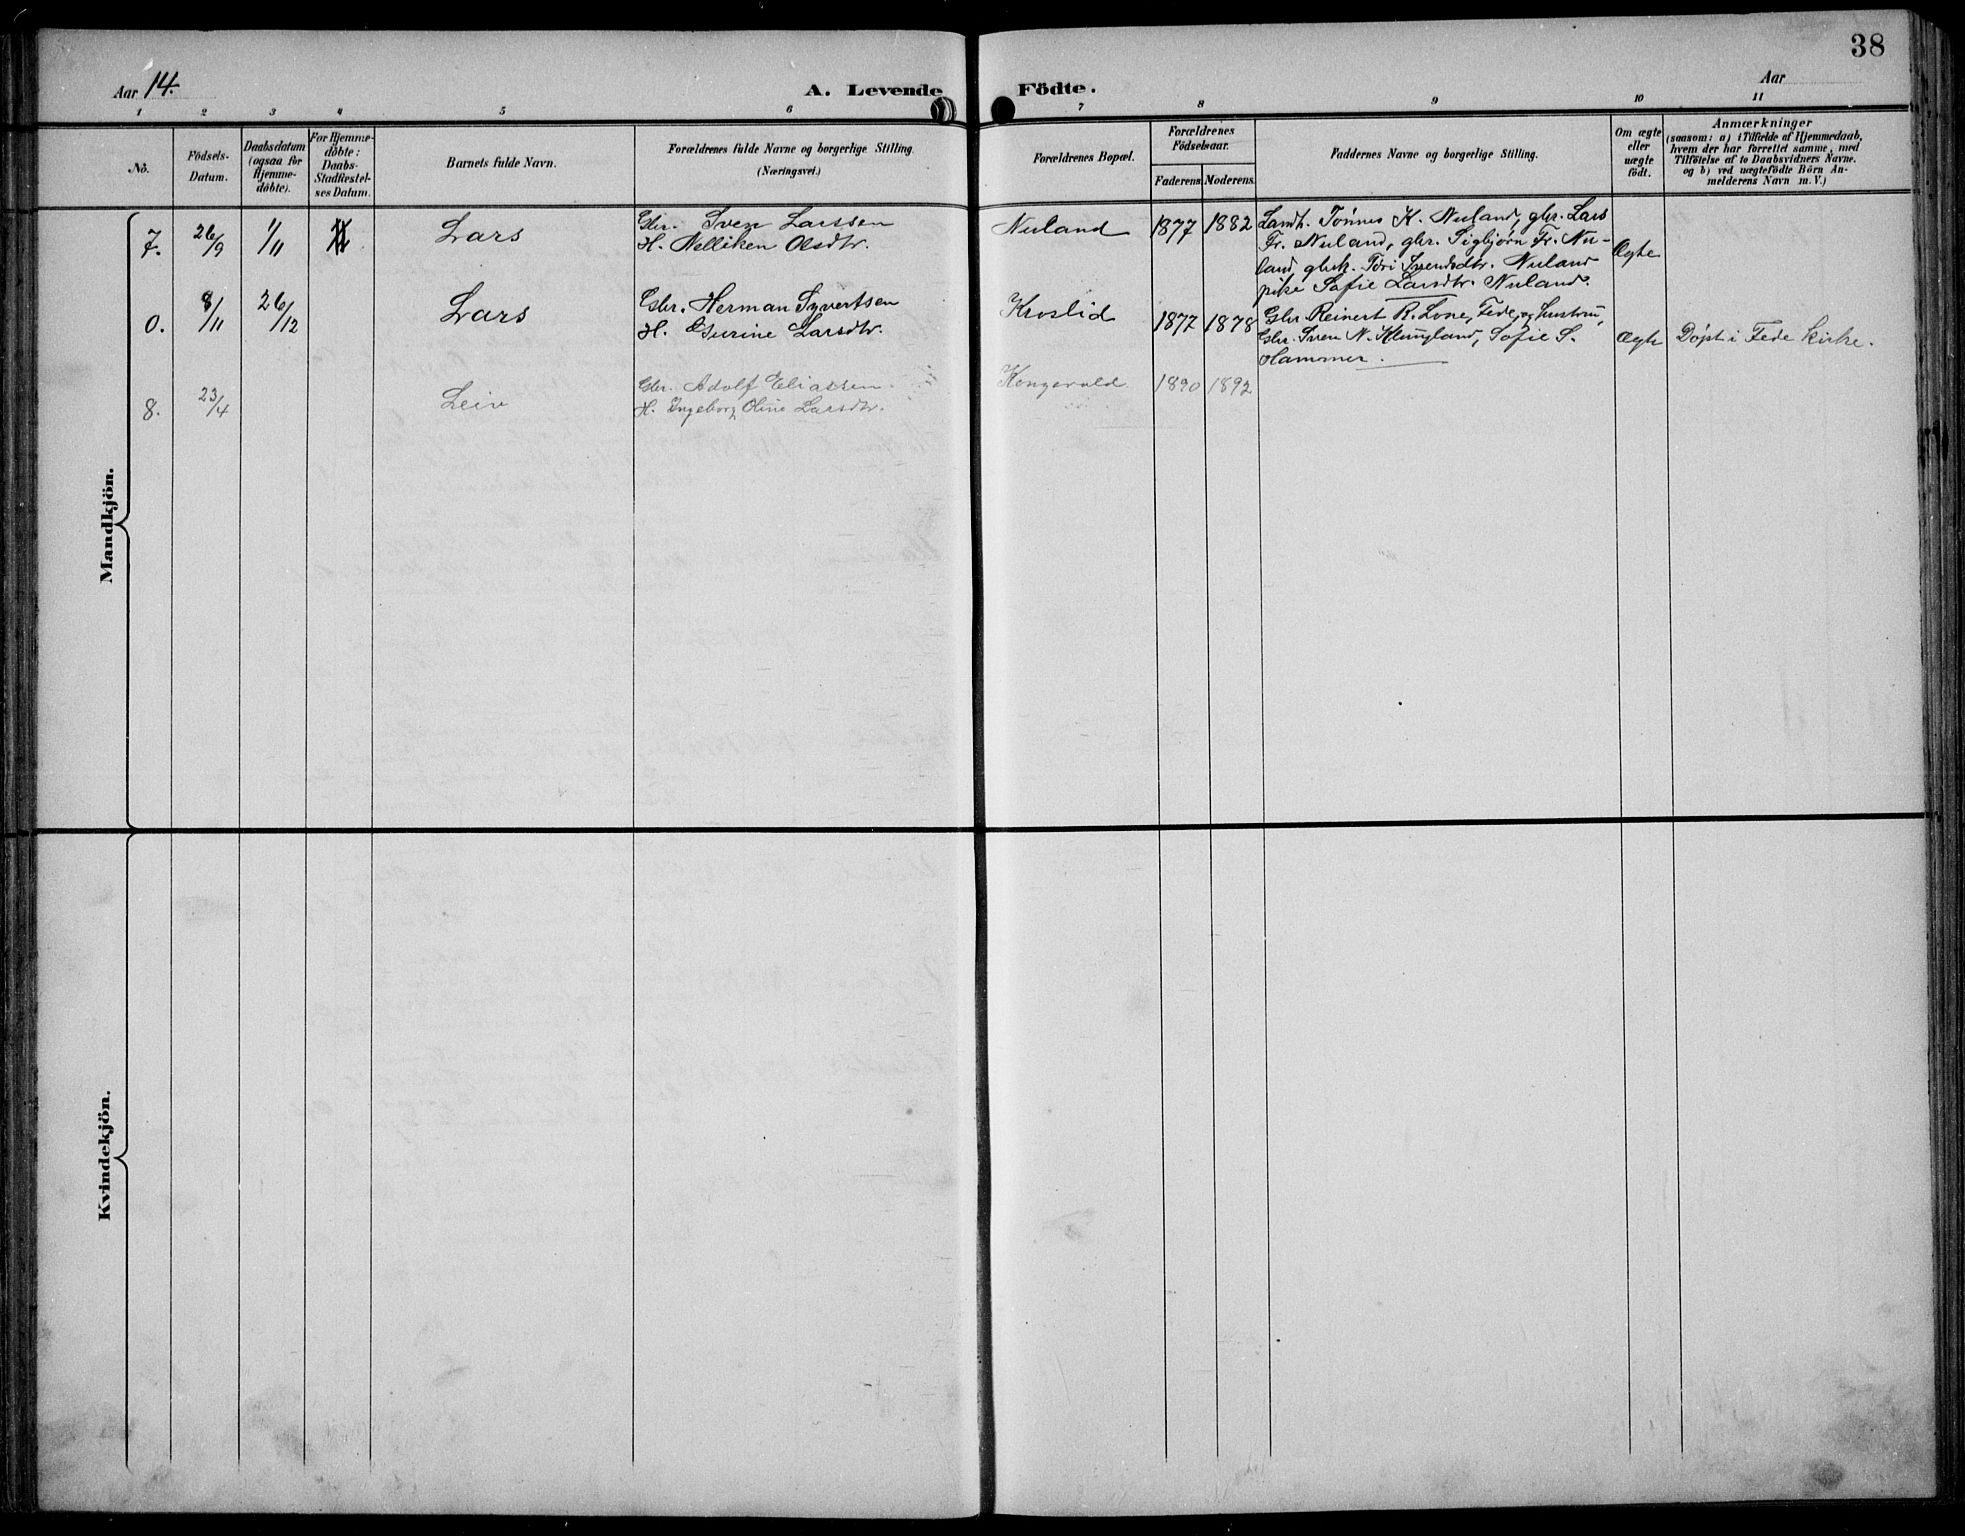 38
Aar 14.
A. Levende Födte.
Aar
1 2 3 4 5 6 7 8 9 10 11
No.
Födsels-
Datum.
Daabsdatum
(ogsaa for
Hjemme-
döbte).
For Hjemme-
döbte:
Daabs-
Stadfæstel-
ses Datum.
Barnets fulde Navn.
Forældrenes fulde Navne og borgerlige Stilling.
(Næringsvei.)
Forældrenes Bopæl.
Forældrenes
Födselsaar.
Faderens. Moderens.
Faddernes Navne og borgerlige Stilling.
Om ægte
eller
uægte
födt.
Anmærkninger
(saasom: a) i Tilfælde af Hjemmedaab,
hvem der har forrettet samme, med
Tilföielse af to Daabsvidners Navne.
og b) ved uægtefödte Börn An-
melderens Navn m. V.)
Mandkjön.
7. 26/9 1/11 Lars
Gbr. Sven Larssen
H. Nelliken Olsdtr.
Nuland 1877 1882
Landh. Tønnes K. Nuland, gbr. Lars
Fr. Nuland, gbr. Sigbjørn Fr. Nu-
land, gbrk. Tori Svendsdtr. Nuland
pike Sofie Larsdtr. Nuland.
Ægte
0. 8/11 26/12 Lars
Gbr. Herman Syvertsen
H. Gurine Larsdtr.
Kroslid 1877 1878
Gbr. Reinert R. Lone, Fede, og hustru,
Gbr. Sven N. Klungland, Sofie S.
Hammer.
Ægte Døpt i Fede Kirke.
8. 23/4 Leiv
Gbr. Adolf Eliassen
H. Ingeborg Oline Larsdtr.
Kongevold 1890 1892
Kvindekjön.